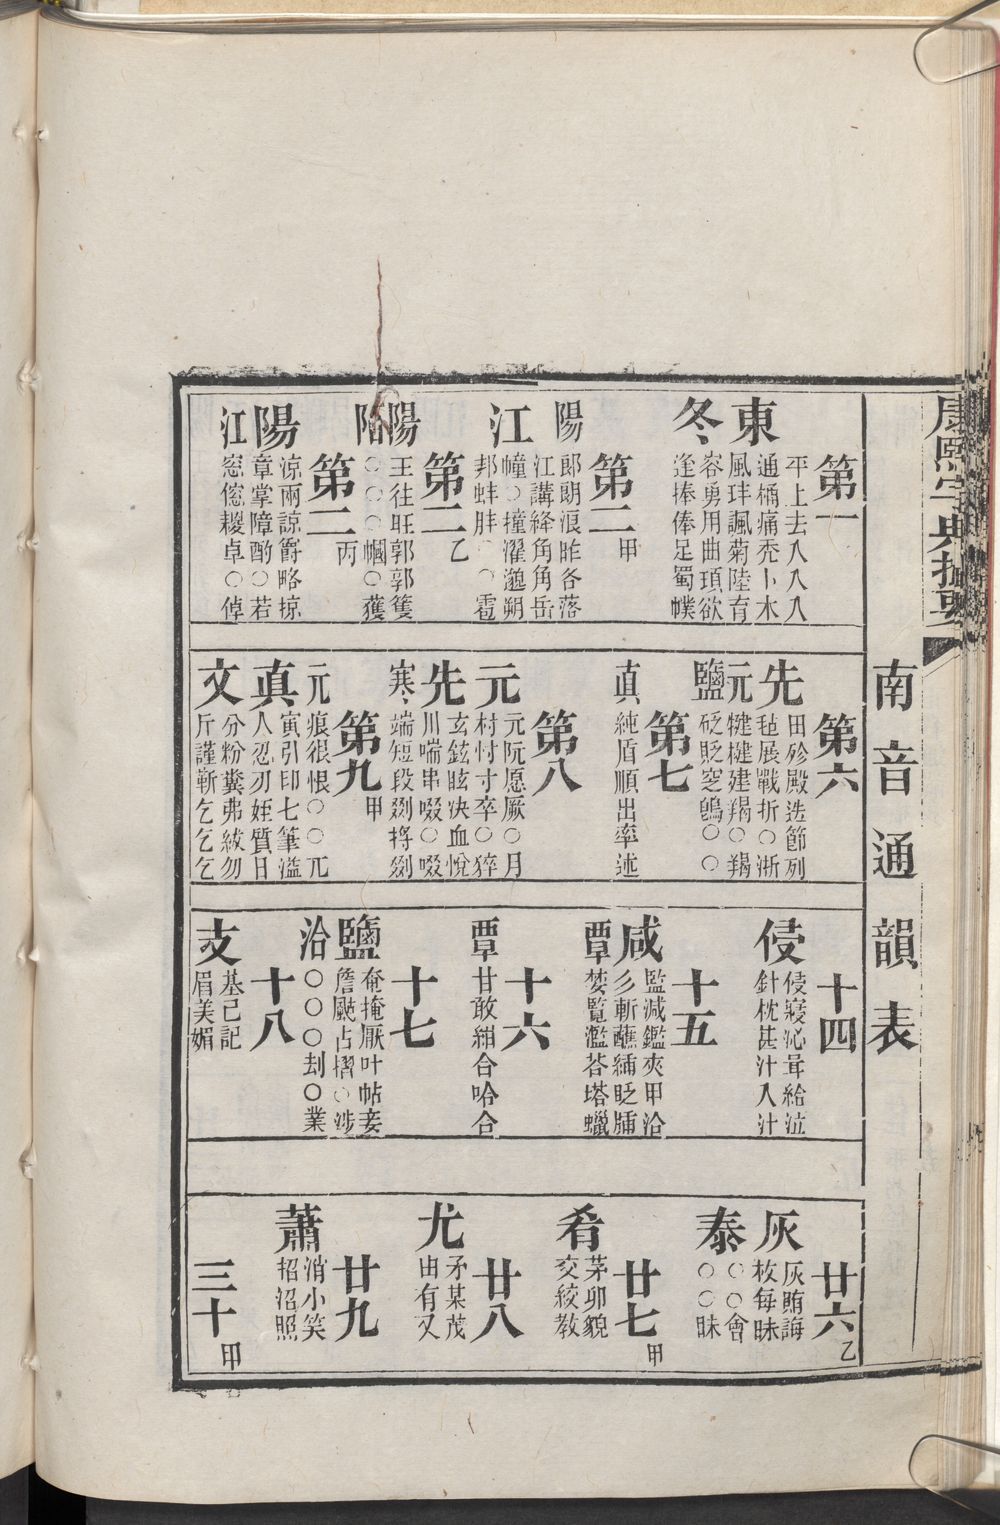 康熙字典撮要
南音通韻表
第一
平上去入入入
東
通桶痛禿卜木
風玤諷菊陸育
冬
容勇用曲頊欲
逢捧俸足蜀幞
第二甲
陽
郎朗浪昨各落
江講絳角角岳
江
幢○撞濯邈朔
邦蚌胖○○雹
第二乙
陽
王往旺郭郭籰
陽
○○○幗○獲
第二丙
陽
涼兩諒爵略掠
章掌障酌○若
江
窓傯糉卓○倬
第六
先
田殄殿迭節列
毡展戰折○浙
元
犍楗建羯○羯
鹽
砭貶窆鴿○○
第七
真
純盾順出率述
第八
元
元阮愿厥○月
村忖寸卒○猝
先
玄鉉眩决血悅
川喘串啜○啜
寒
端短段剟捋剟
第九甲
元
痕很恨○○兀
寅引印七筆溢
真
人忍刃姪質日
文
分粉糞弗紱勿
斤謹靳乞乞乞
十四
侵
侵寢沁咠給泣
針枕甚汁入汁
十五
咸
監減鑑夾甲洽
彡斬蘸𦈏眨牐
覃
婪覧濫荅塔蠟
十六
覃
甘敢紺合哈合
十七
鹽
奄掩厭叶帖妾
詹颭占摺○涉
洽
○○○刦○業
十八
支
基己記
眉美媚
廿六乙
灰
灰賄誨
枚每昧
泰
○○會
○○昧
廿七甲
肴
茅卯貌
交絞教
廿八
尤
矛某茂
由有又
廿九
蕭
消小笑
招沼照
三十甲